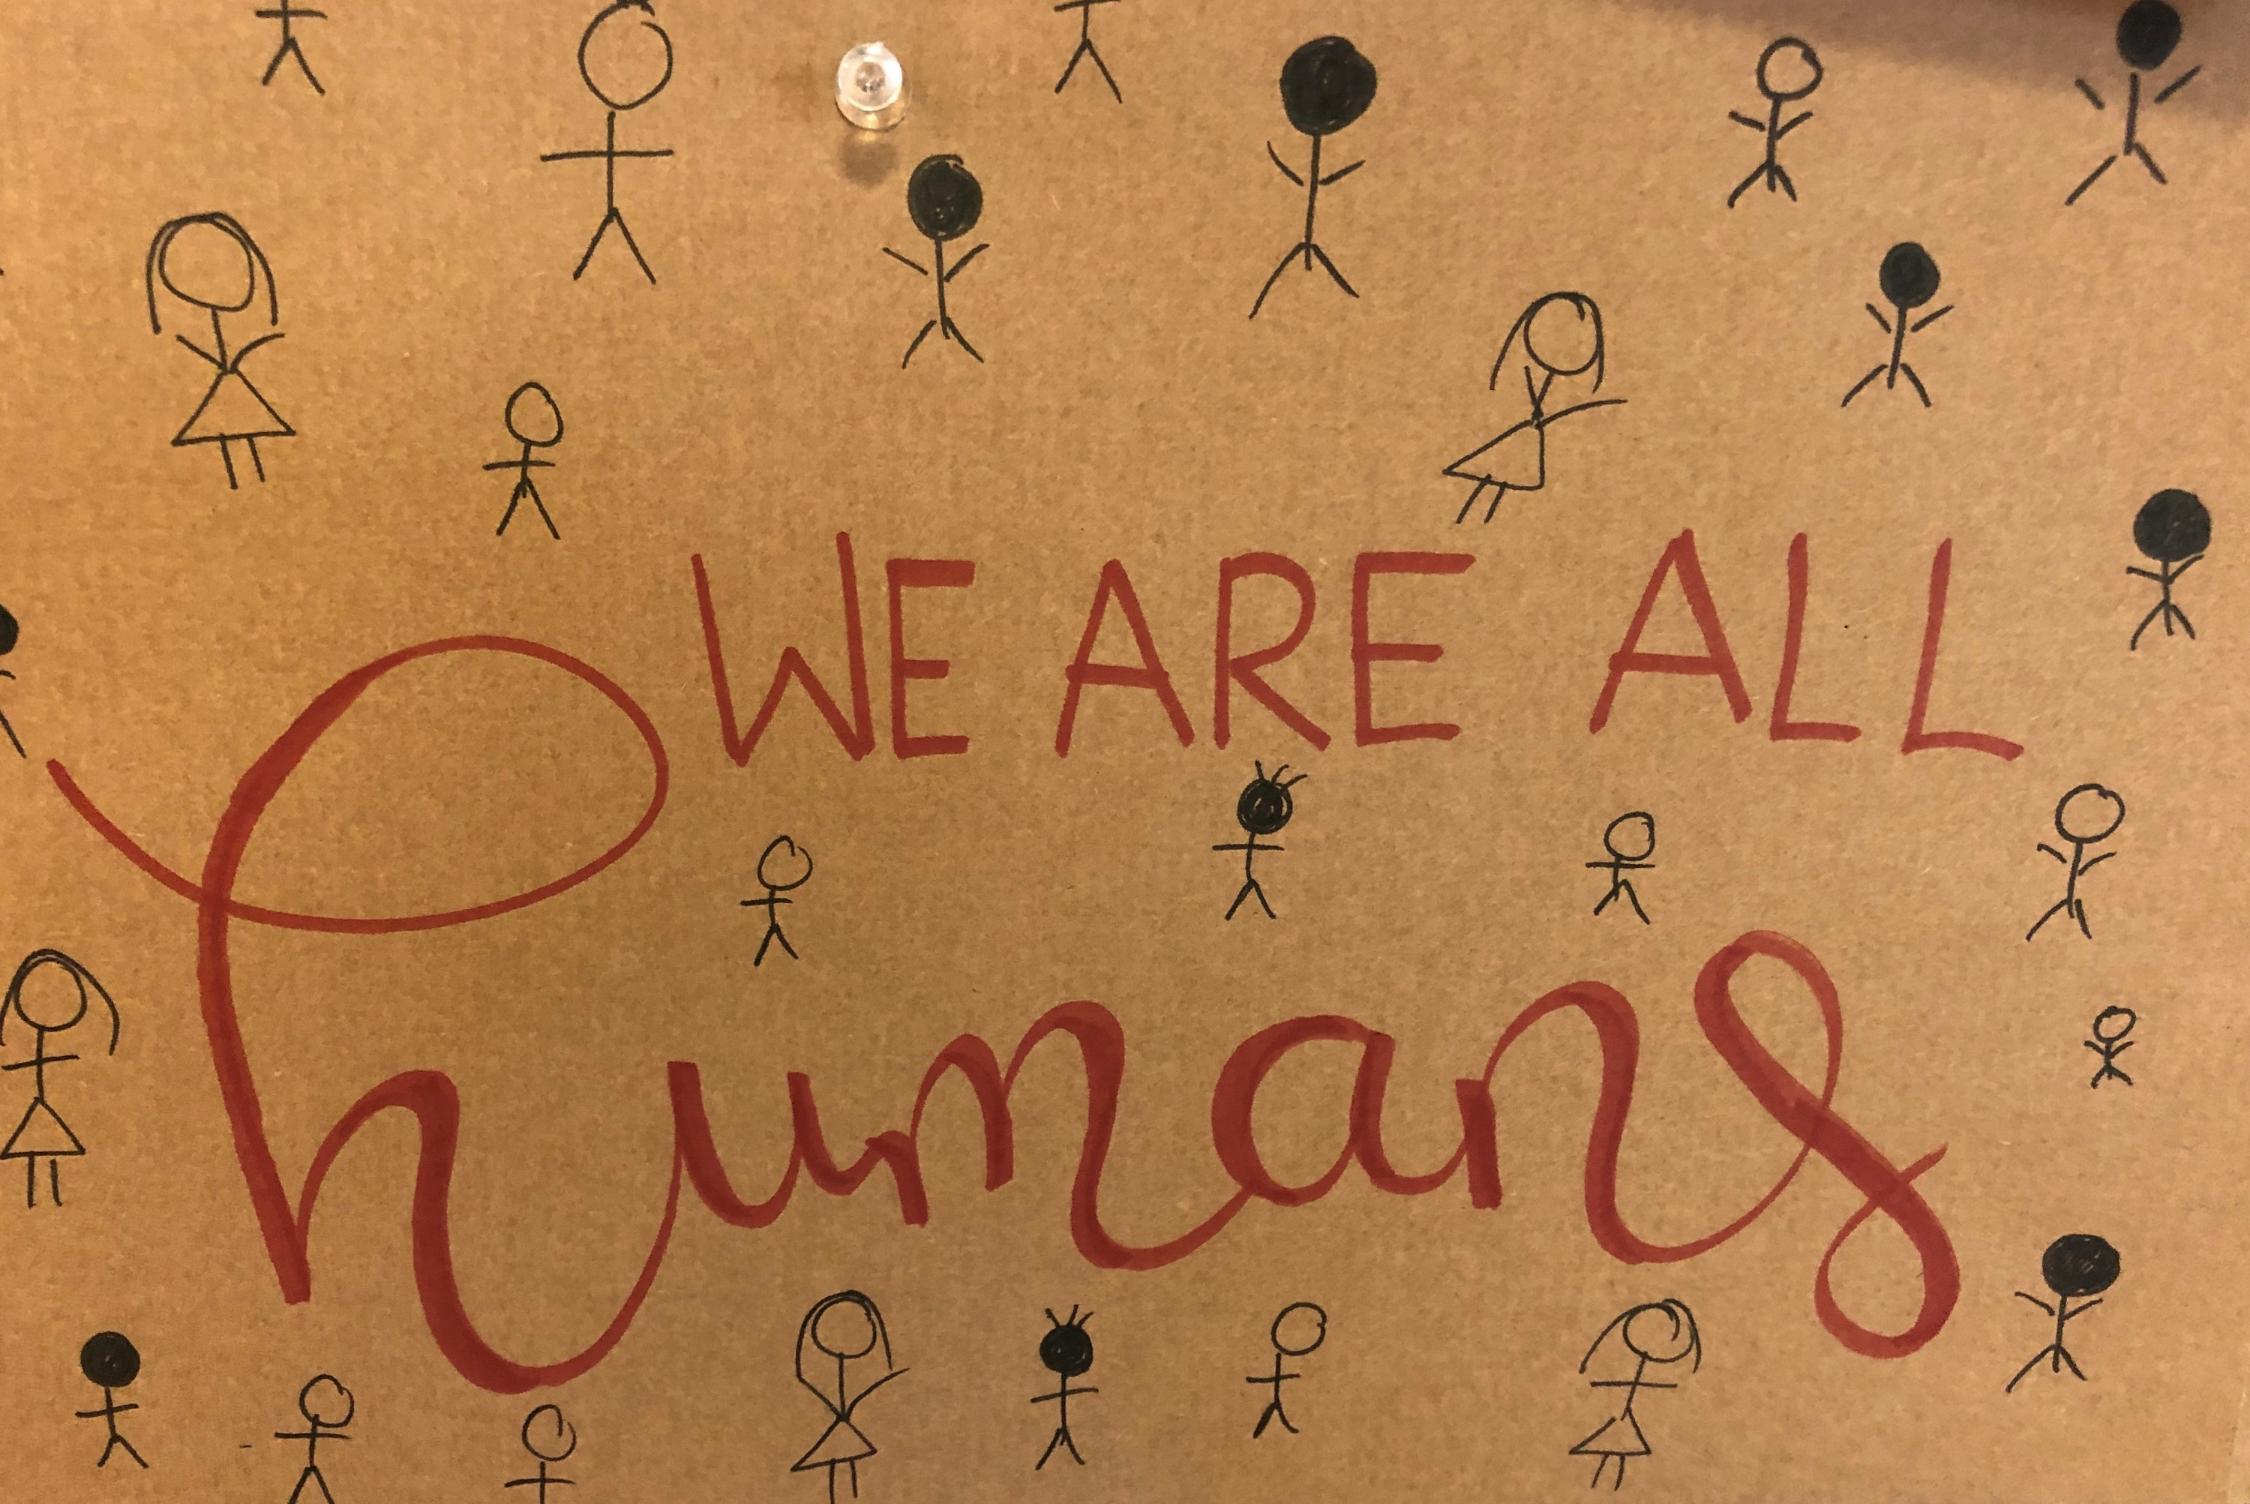 WE ARE ALL
humans